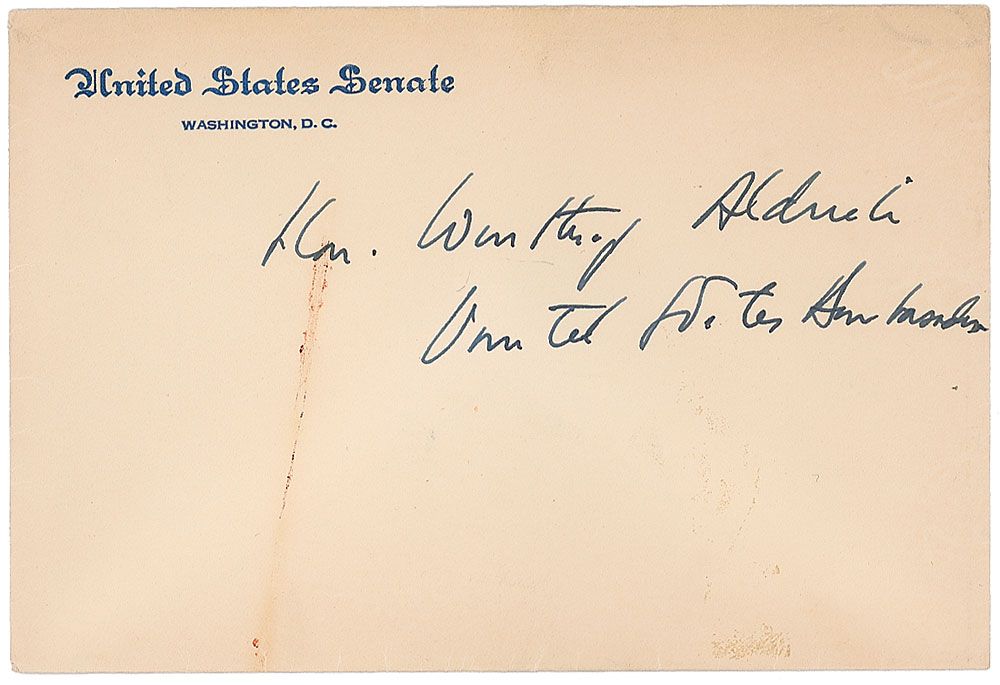 United States Senate
WASHINGTON, D. C.
Hon. Winthrop Aldrich
United States Ambassador